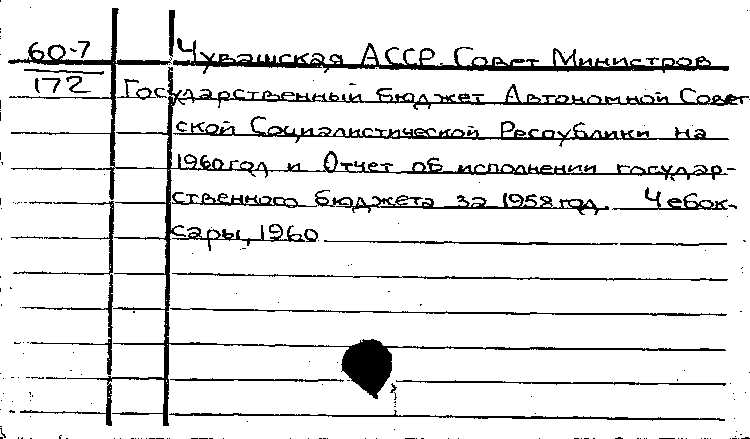 60-7
172
Чувашская АССР. Совет Министров
Государственный бюджет Автономной Совет
ской Социалистической Республики на
1960 год и Отчет об исполнении государ-
ственного бюджета за 1958 год. Чебок-
сары, 1960